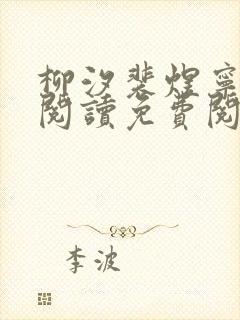 柳汐裴煜寧
閱讀免費閱
李波